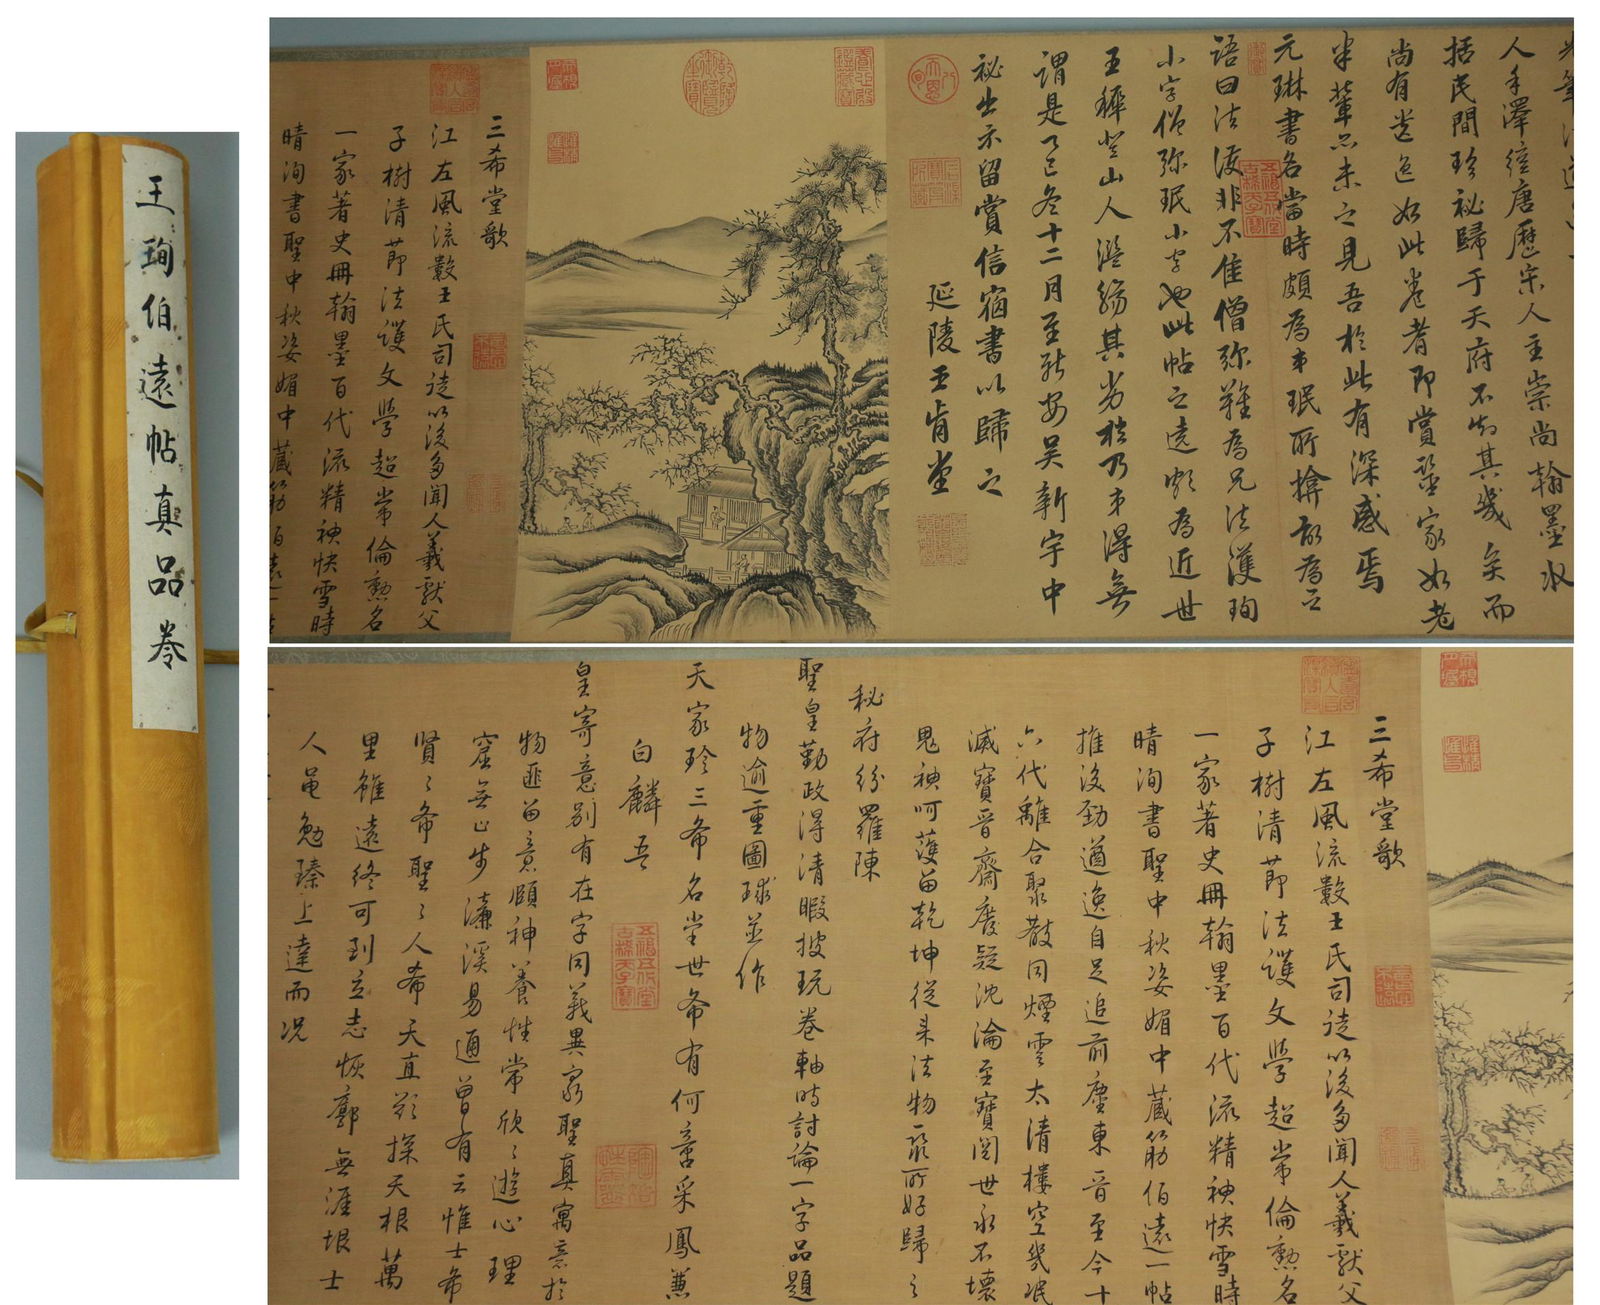 王珣伯遠帖真品卷
人手澤經唐歷宋人主崇尚翰墨收
括民間珍祕歸于天府不知其幾矣而
尚有遺逸如此卷者即賞鑒家如老
米輩亦未之見吾於此有深感焉
元琳書名當時頗為弟珉所揜故為之
語曰法護非不佳僧彌難為兄法護珣
小字僧彌珉小字也此帖之遠頗為近世
王穉登山人濫觴其劣於乃弟得無
謂是乙巳冬十二月至新安吳新宇中
祕出示留賞信宿書以歸之
延陵王肯堂
三希堂歌
江左風流數王氏司徒以後多聞人羲獻父
子樹清節法護文學超常倫勲名
一家著史冊翰墨百代流精神快雪時
晴洵書聖中秋姿媚中藏筋伯遠一帖
三希堂歌
江左風流數王氏司徒以後多聞人羲獻父
子樹清節法護文學超常倫勲名
一家著史冊翰墨百代流精神快雪時
晴洵書聖中秋姿媚中藏筋伯遠一帖
推後勁遒逸自足追前塵東晉至今十
六代離合聚散同煙雲太清樓空幾泯
滅寶晉齋廢疑沈淪至寶閱世永不壞
鬼神呵護留乾坤從來法物聚所好歸之
秘府紛羅陳
聖皇勤政得清暇披玩卷軸時討論一字品題
物逾重圖球並作
天家珍三希名堂世希有何啻采鳳兼
白麟吾
皇寄意別有在字同義異家聖真寓意於
物匪留意頤神養性常欣欣遊心理
窟無止步濂溪易通曾有云惟士希
賢賢希聖聖人希天直欲探天根萬
里雖遠終可到立志恢廓無涯垠士
人黽勉臻上達而况